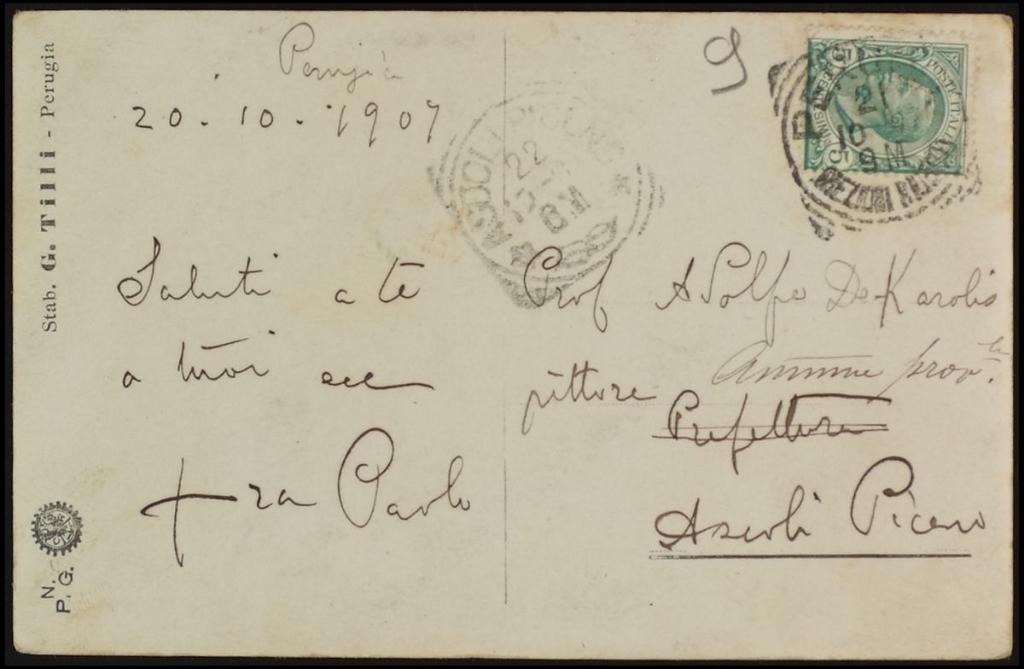 Stab. G. Tilli - Perugia
N.
P. G.
Perugia
20. 10. 1907
Saluti a te
a tuoi ecc
fra Paolo
9
ASCOLI PICENO
22
10
8M
POSTE ITALIANE
5
21
10
9M
Prof Adolfo De Karolis
pittore
Ammne prov.le
Prefettura
Ascoli Piceno